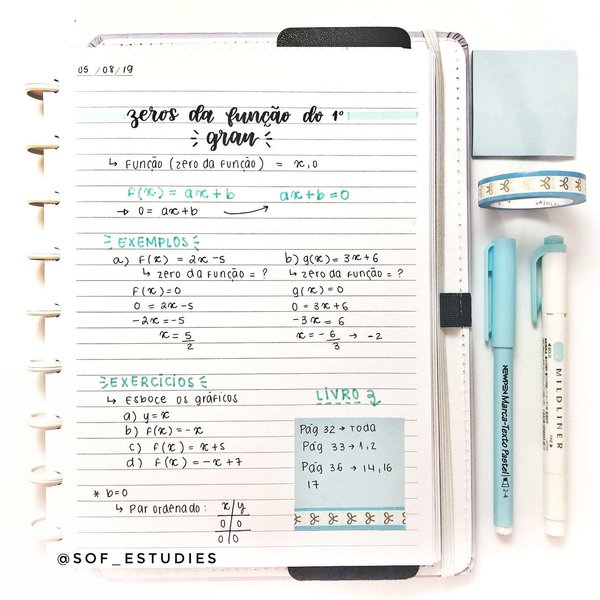 05/08/19
zeros da função do 1º
grau
↳ Função (zero da Função) = x,0
F(x) = ax+b ax+b=0
→ 0 = ax+b
EXEMPLOS
a) F(x) = 2x-5
↳ zero da Função = ?
F(x)=0
0 = 2x-5
-2x=-5
x = 5/2
b) g(x) = 3x+6
↳ zero da Função = ?
g(x)=0
0=3x+6
-3x = 6
x = -6/3 → -2
EXERCÍCIOS
↳ Esboce os gráficos
a) y=x
b) F(x)=-x
c) F(x) = x+5
d) F(x) = -x+7
* b=0
↳ Par ordenado:
x y
0 0
0 0
LIVRO 2
Pág 32 → Toda
Pág 33 → 1,2
Pág 36 → 14,16
17
@SOF_ESTUDIES
NEWPEN Marca-Texto Pastel 2-4
MILDLINER